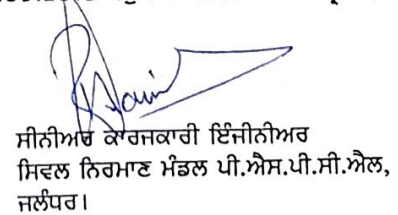 ਸੀਨੀਅਰ ਕਾਰਜਕਾਰੀ ਇੰਜੀਨੀਅਰ
ਸਿਵਲ ਨਿਰਮਾਣ ਮੰਡਲ ਪੀ.ਐਸ.ਪੀ.ਸੀ.ਐਲ,
ਜਲੰਧਰ।